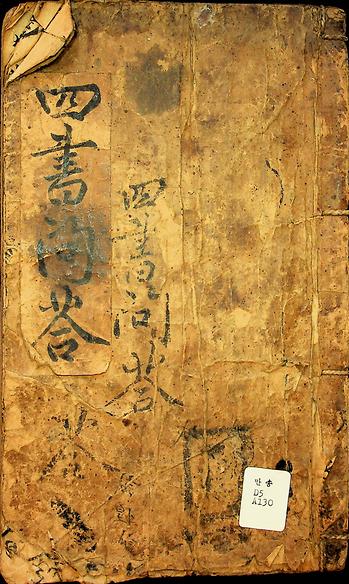 四書問答
四書問答
答
만송
D5
A130